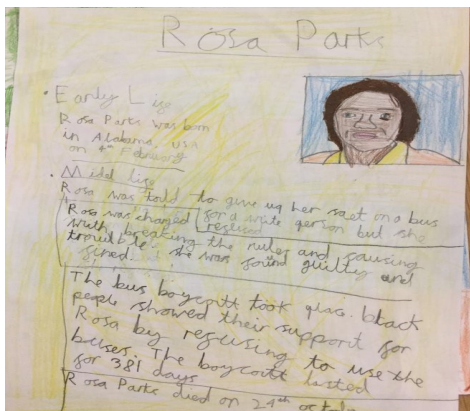 Rosa Parks
• Early Life
Rosa Parks was born
in Alabama, USA
on 4th February
• Midd life
Rosa was told to give up her saet on a bus
for a white person but she
refused
Rosa was charged
with breaking the rules and causing
trouble. she was found guilty and
fined.
The bus boycott took place. black
people showed their support for
Rosa by refusing to use the
buses. The boycott lasted
for 381 days
Rosa Parks died on 24th octobe